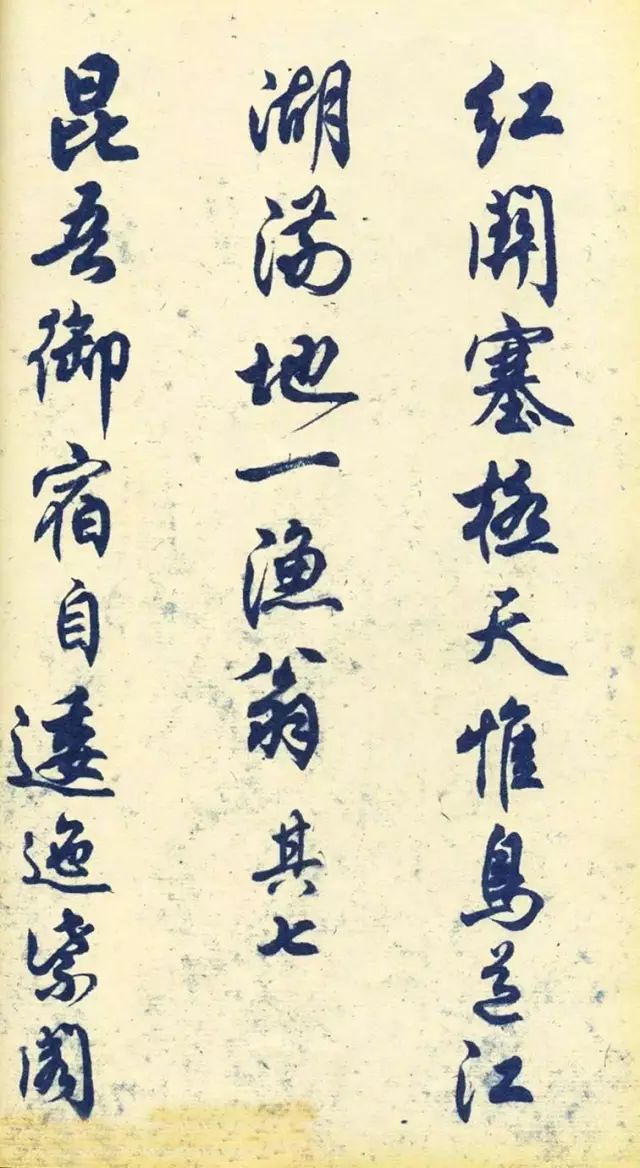 紅關塞極天惟鳥道江
湖滿地一漁翁 其七
昆吾御宿自逶迤紫閣